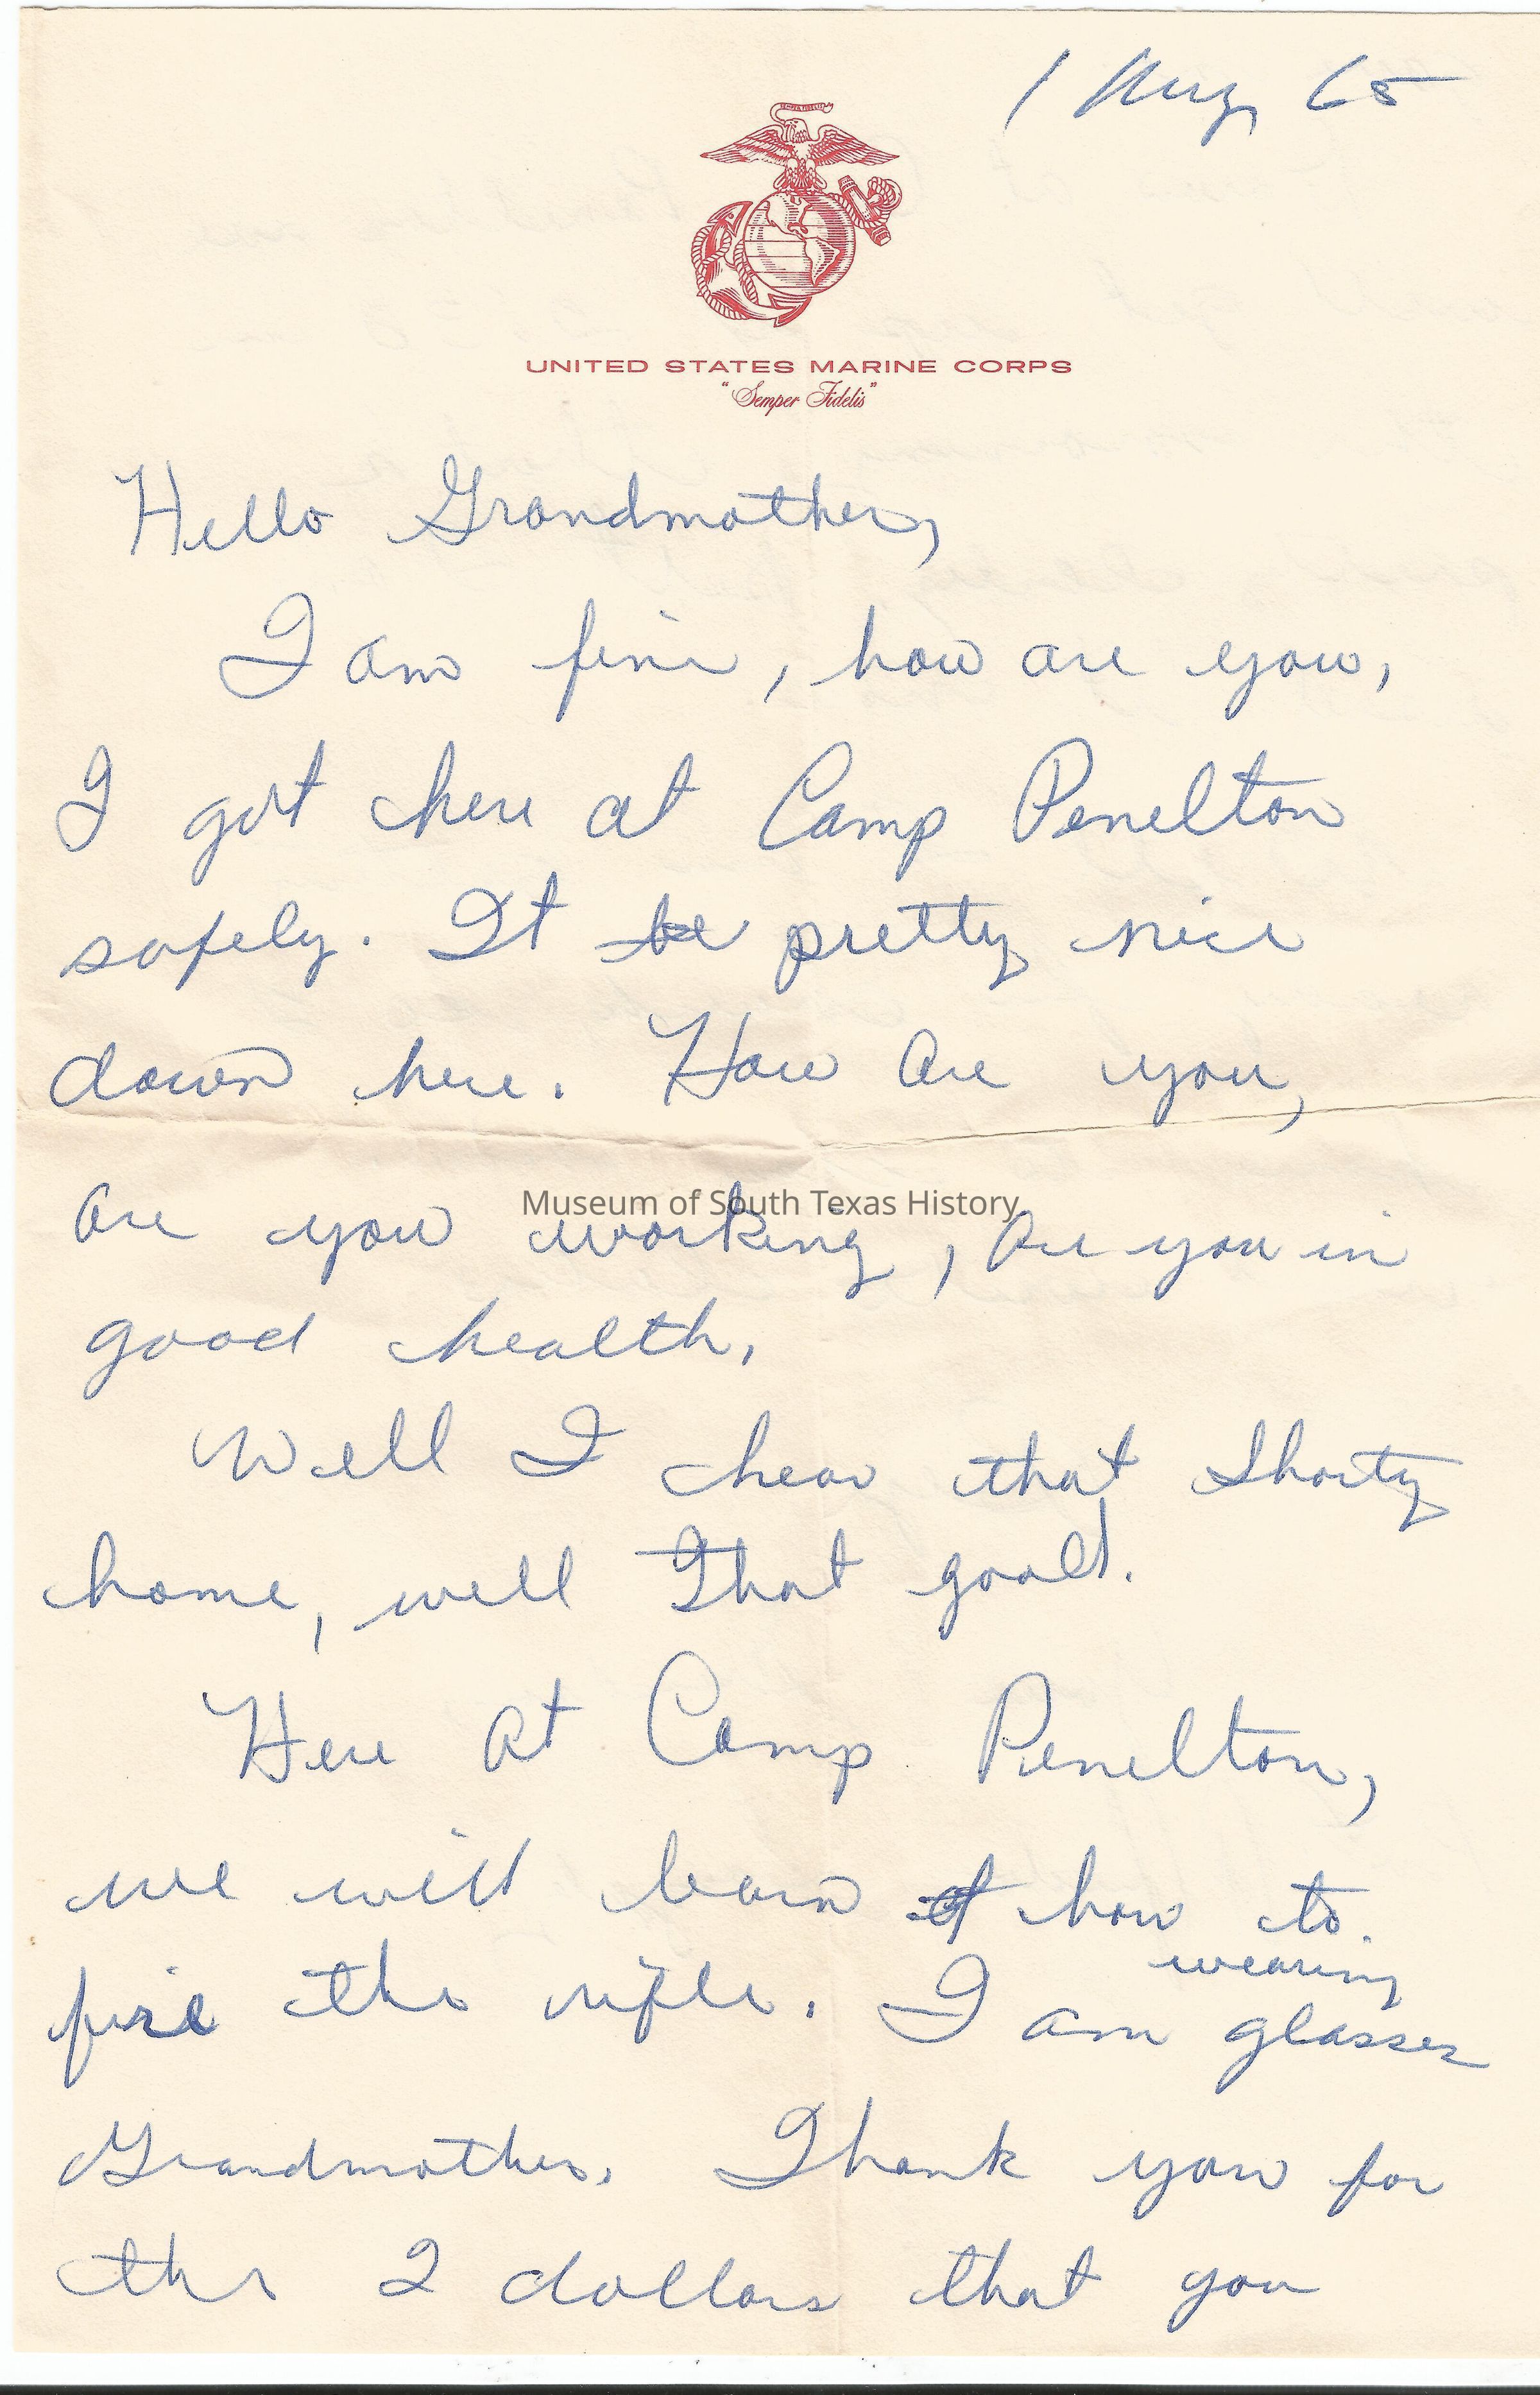 1 Aug 65
SEMPER FIDELIS
UNITED STATES MARINE CORPS
"Semper Fidelis"
Hello Grandmother,
I am fine, how are you,
I got here at Camp Penelton
safely. It be pretty nice
down here. How Are you,
Are you working, Are you in
good health,
Well I hear that Shorty
home, well That good.
Here At Camp Penelton,
we will learn how to
wearing
fire the rifle. I am glasses
Grandmother. Thank you for
the 2 dollars that you
Museum of South Texas History